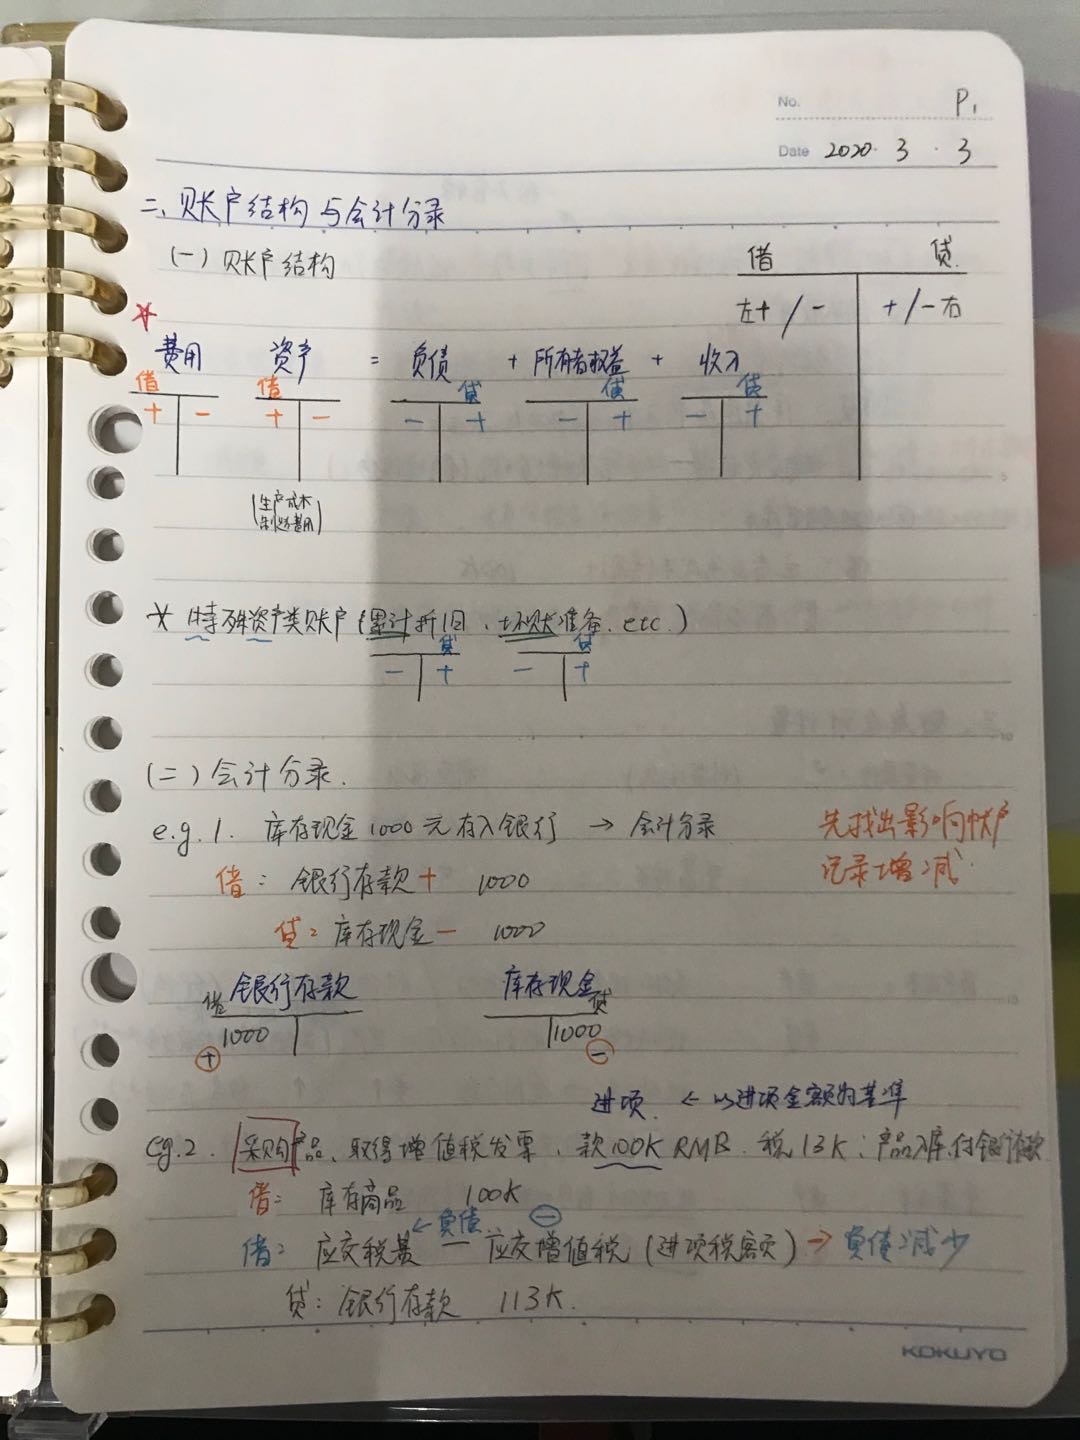 No. P1
Date 2020. 3. 3
二、账户结构与会计分录
(一)账户结构
借 贷
左+/- +/-右
费用 资产 = 负债 + 所有者权益 + 收入
借 借 贷 贷 贷
+ - + - - + - + - +
(生产成本
制造费用)
特殊资产类账户(累计折旧、坏账准备、etc.)
贷 贷
- + - +
(二)会计分录.
e.g.1. 库存现金1000元存入银行 → 会计分录
先找出影响帐户
记录增减.
借: 银行存款+ 1000
贷: 库存现金- 1000
借 银行存款 库存现金 贷
1000 1000
+ -
进项. ← 以进项金额为基准
eg.2. 采购产品、取得增值税发票、款100K RMB. 税13K;产品入库,付银行存款
借: 库存商品 100K
← 负债 -
借: 应交税费 — 应交增值税(进项税额) → 负债减少
贷: 银行存款 113K.
KOKUYO